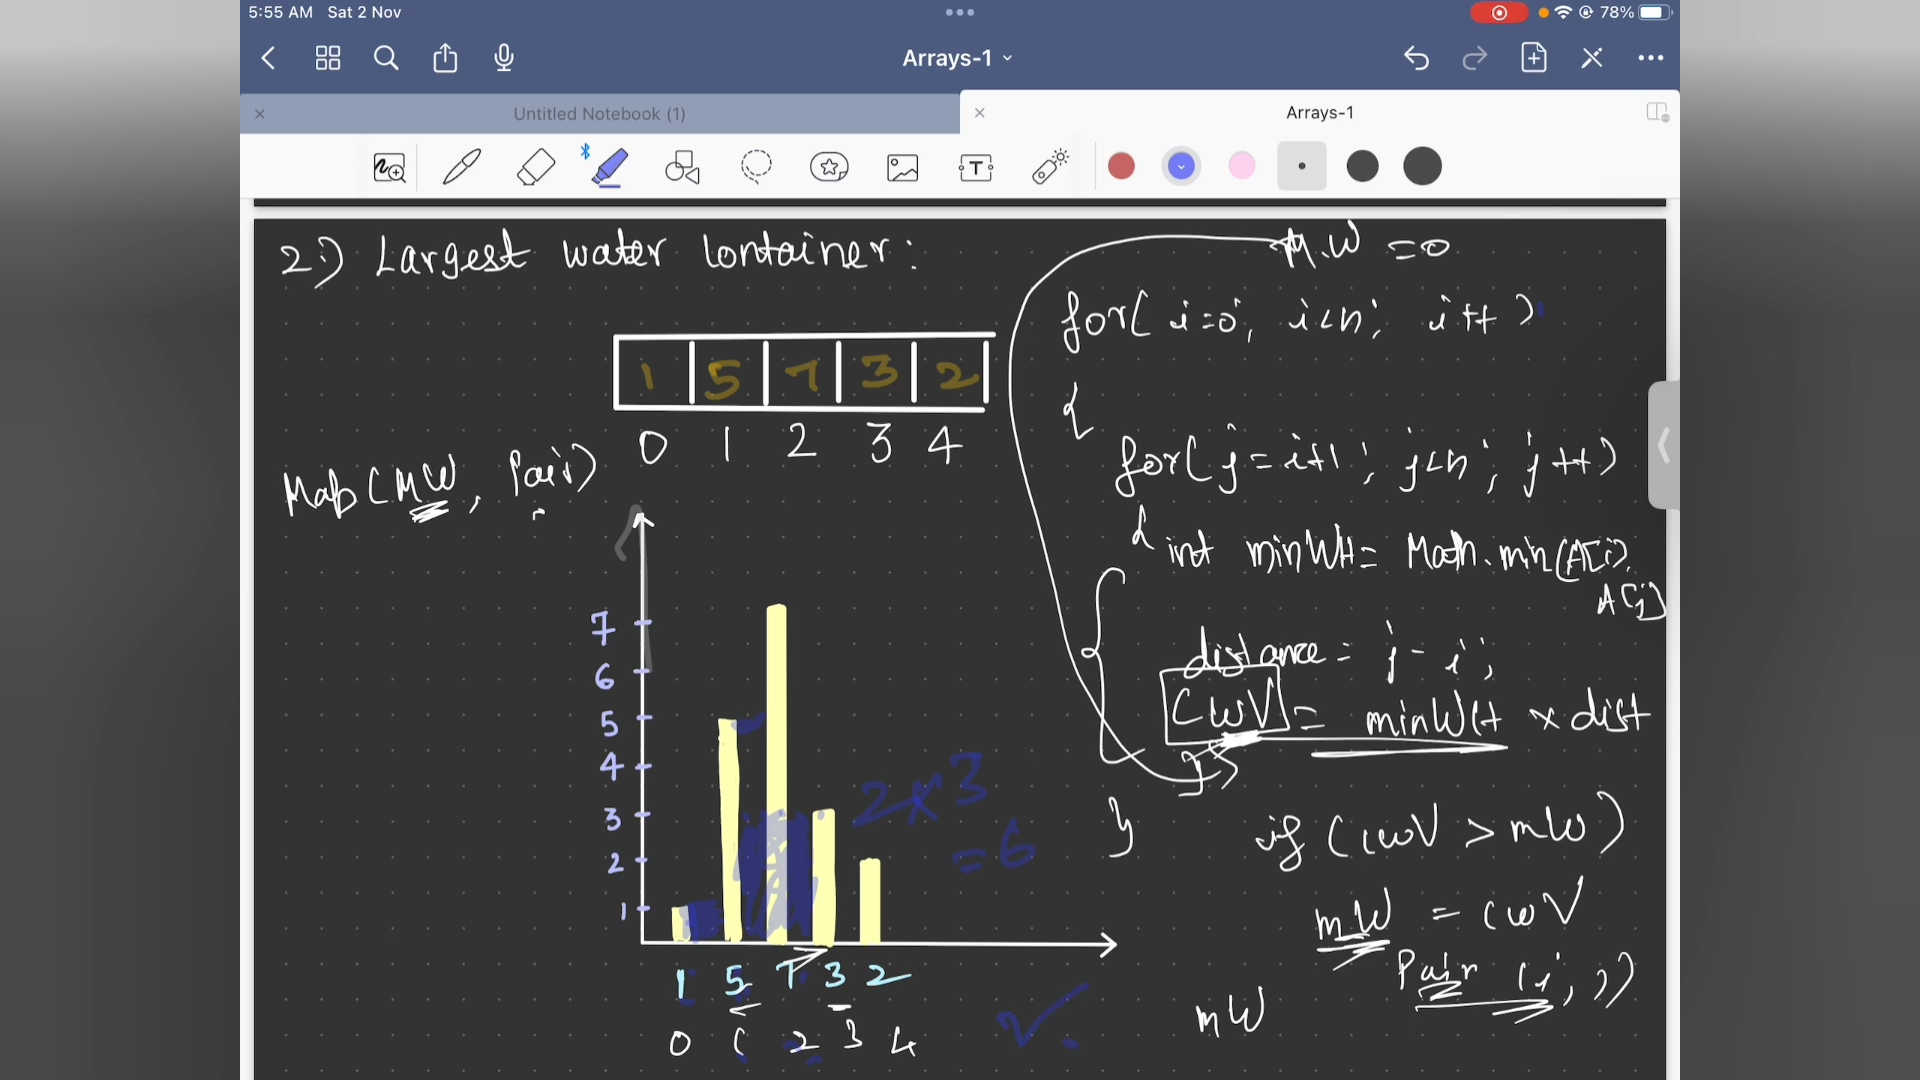 5:55 AM Sat 2 Nov
78%
Arrays-1
Untitled Notebook (1)
Arrays-1
T
2:) Largest water Container:
1 5 7 3 2
0 1 2 3 4
Map (MW, Pair)
7
6
5
4
3
2
1
2x3
=6
1 5 7 3 2
0 1 2 3 4
M.W = 0
for( i=0; i<n; i++ )
{
for( j = i+1; j<n; j++)
{ int minWH = Math.min(A[i],
A[j]
distance = j - i;
CWV = minWH x dist
}
}
if (CWV > mW)
mW = CWV
Pair (i, j)
mW